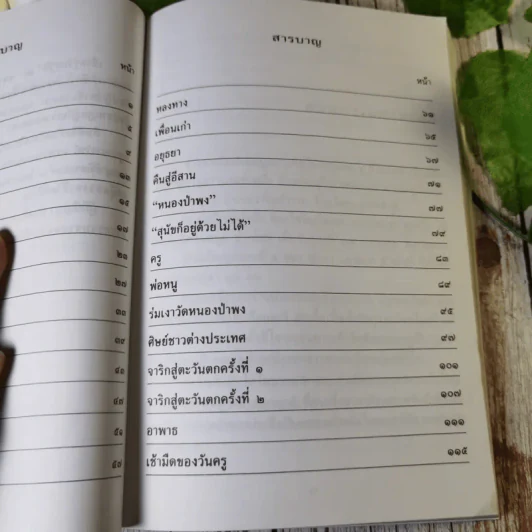 บาญ
หน้า
๑
๕
๙
๑๓
๑๕
๑๗
๒๑
๒๗
๓๓
๓๙
๔๑
๔๗
๕๑
๕๗
สารบาญ
หน้า
หลงทาง ๖๑
เพื่อนเก่า ๖๕
อยุธยา ๖๗
คืนสู่อีสาน ๗๑
“หนองป่าพง” ๗๗
“สุนัขก็อยู่ด้วยไม่ได้” ๗๙
ครู ๘๓
พ่อหนู ๘๙
ร่มเงาวัดหนองป่าพง ๙๕
ศิษย์ชาวต่างประเทศ ๙๗
จาริกสู่ตะวันตกครั้งที่ ๑ ๑๐๑
จาริกสู่ตะวันตกครั้งที่ ๒ ๑๐๗
อาพาธ ๑๑๑
เช้ามืดของวันครู ๑๑๕